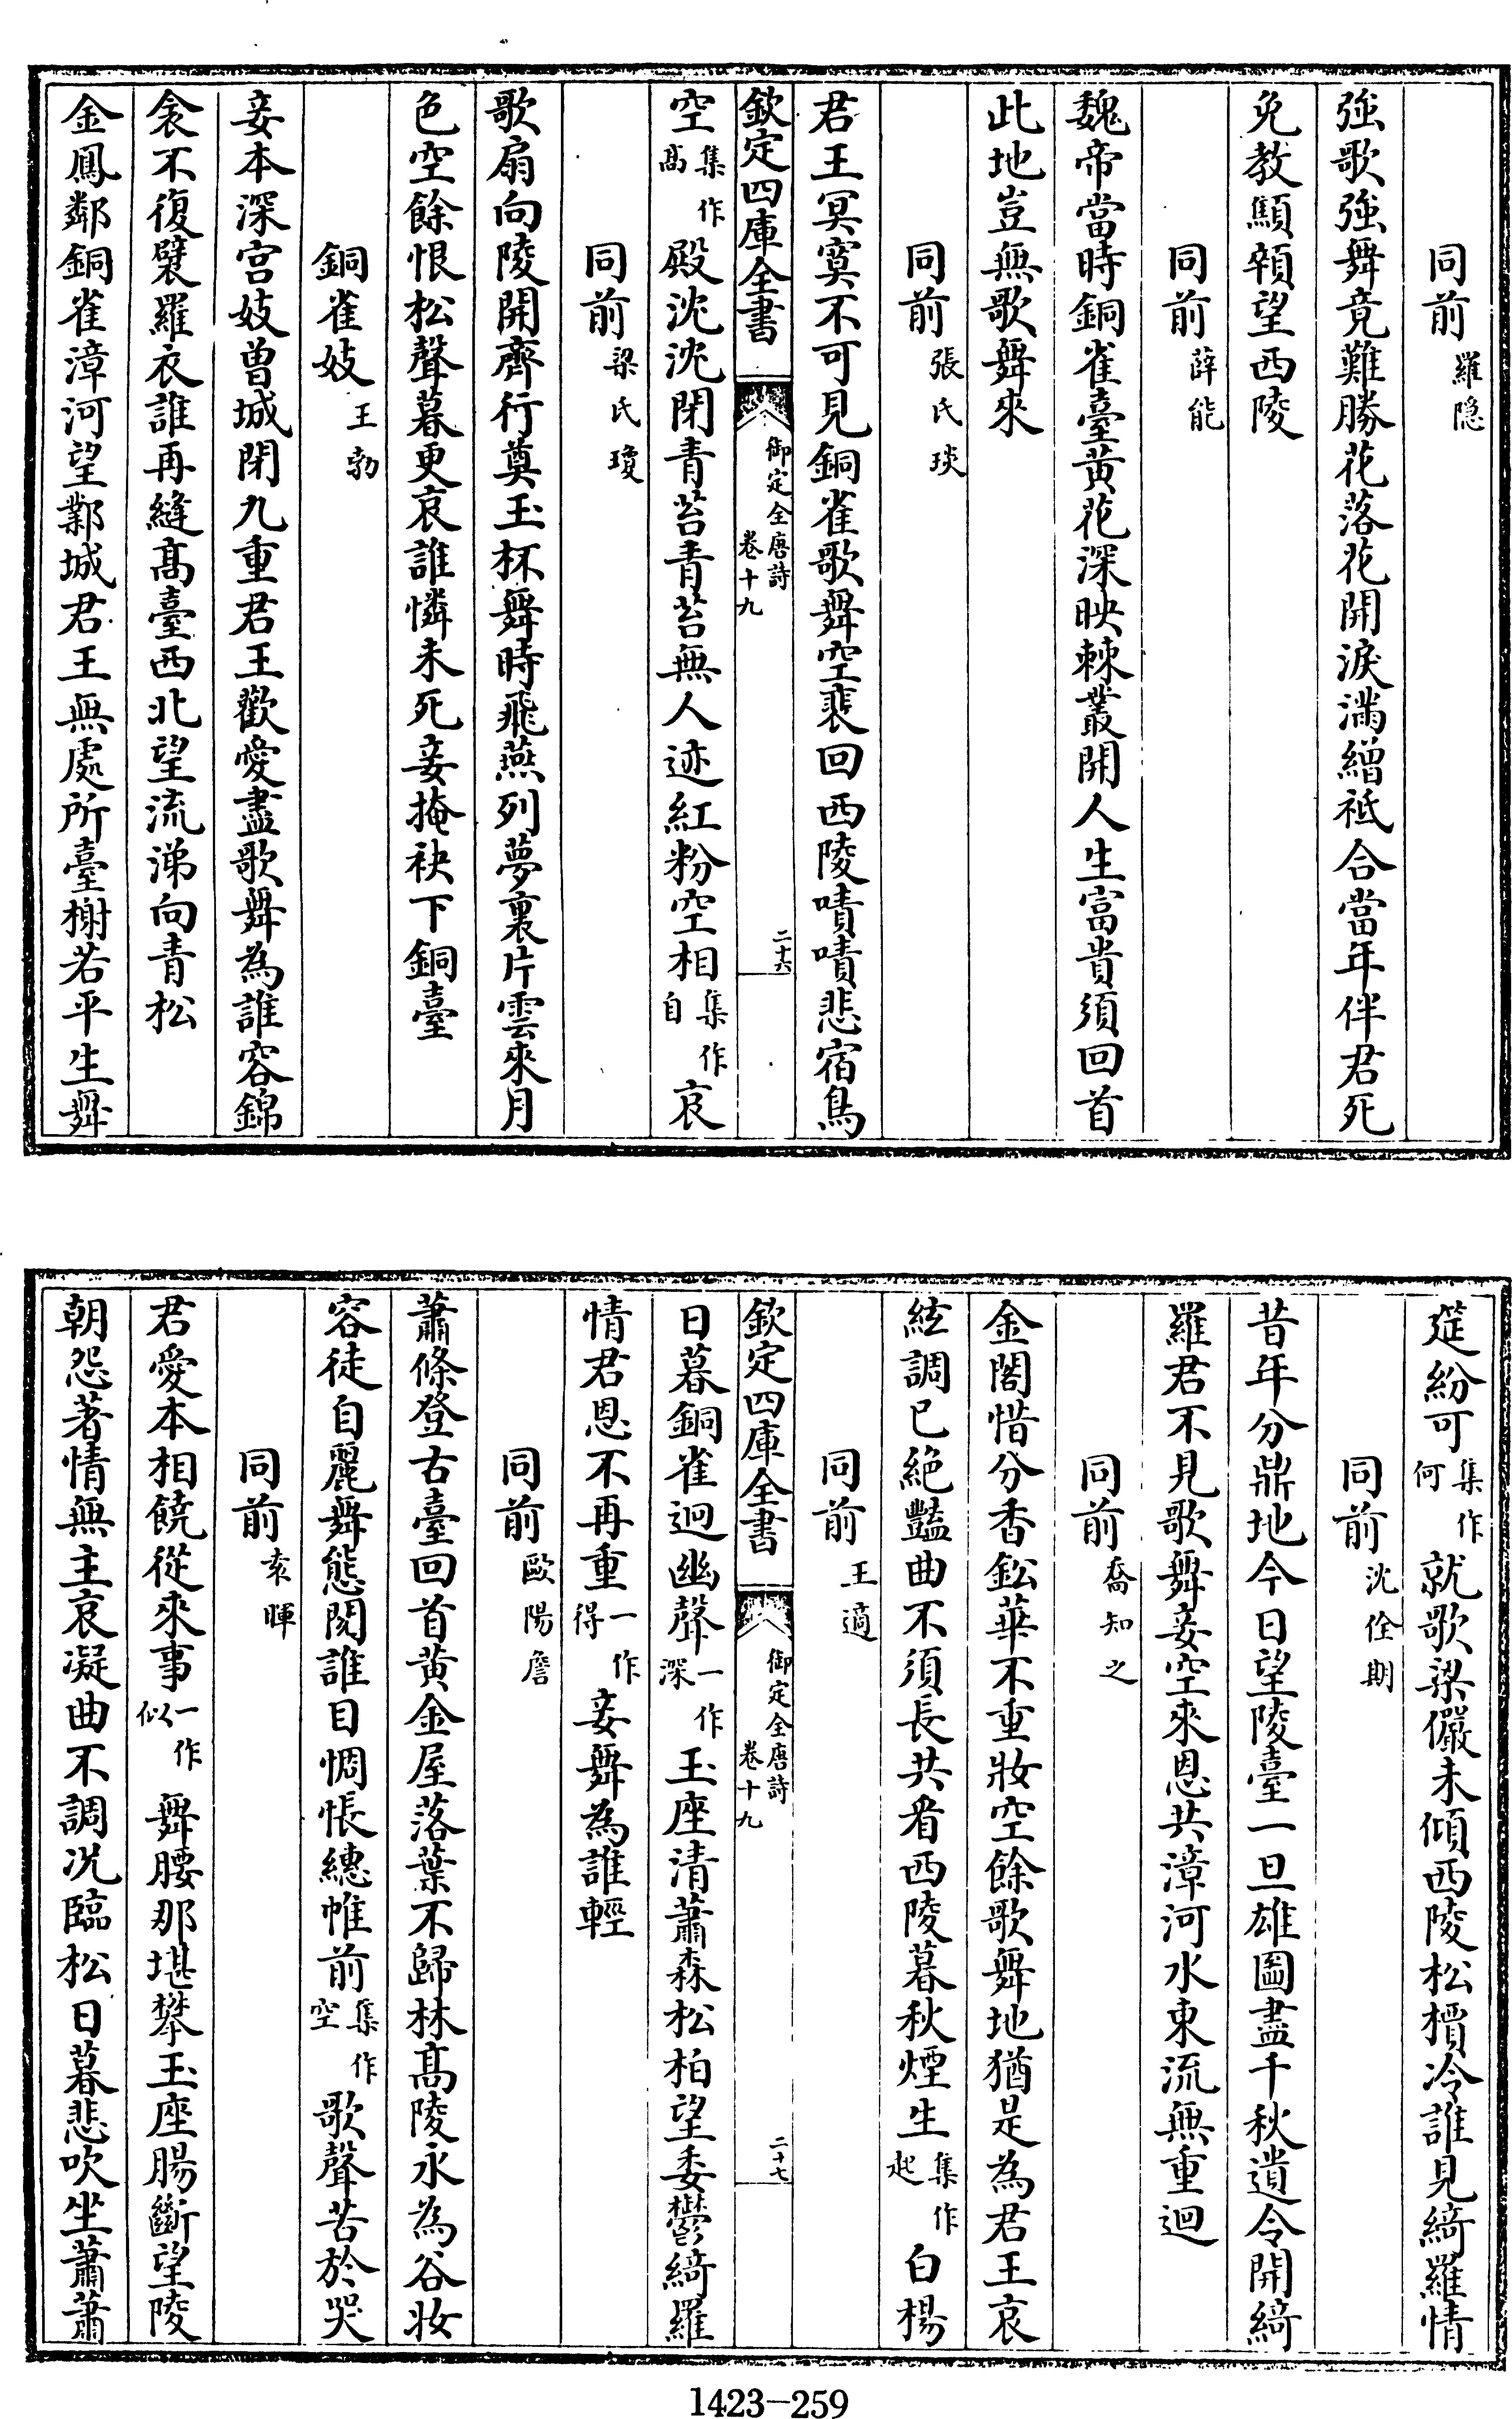 同前羅隱
強歌強舞竟難勝花落花開淚滿繒祗合當年伴君死
免教顦顇望西陵
同前薛能
魏帝當時銅雀臺黃花深映棘叢開人生富貴須回首
此地豈無歌舞來
同前張氏琰
君王冥寞不可見銅雀歌舞空裴回西陵嘖嘖悲宿鳥
欽定四庫全書 御定全唐詩卷十九 二十六
空集作高殿沈沈閉青苔青苔無人迹紅粉空相集作自哀
同前梁氏瓊
歌扇向陵開齊行奠玉杯舞時飛燕列夢裏片雲來月
色空餘恨松聲暮更哀誰憐未死妾掩袂下銅臺
銅雀妓王勃
妾本深宮妓曾城閉九重君王歡愛盡歌舞為誰容錦
衾不復襞羅衣誰再縫高臺西北望流涕向青松
金鳳鄰銅雀漳河望鄴城君王無處所臺榭若平生舞
筵紛可集作何就歌梁儼未傾西陵松檟冷誰見綺羅情
同前沈佺期
昔年分鼎地今日望陵臺一旦雄圖盡千秋遺令開綺
羅君不見歌舞妾空來恩共漳河水東流無重迴
同前喬知之
金閣惜分香鉛華不重妝空餘歌舞地猶是為君王哀
絃調已絕豔曲不須長共看西陵暮秋煙生集作起白楊
同前王適
欽定四庫全書 御定全唐詩卷十九 二十七
日暮銅雀迥幽聲一作深玉座清蕭森松柏望委鬱綺羅
情君恩不再重一作得妾舞為誰輕
同前歐陽詹
蕭條登古臺回首黃金屋落葉不歸林高陵永為谷妝
容徒自麗舞態閱誰目惆悵繐帷前集作空歌聲苦於哭
同前袁暉
君愛本相饒從來事一作似舞腰那堪攀玉座腸斷望陵
朝怨著情無主哀凝曲不調況臨松日暮悲吹坐蕭蕭
1423-259